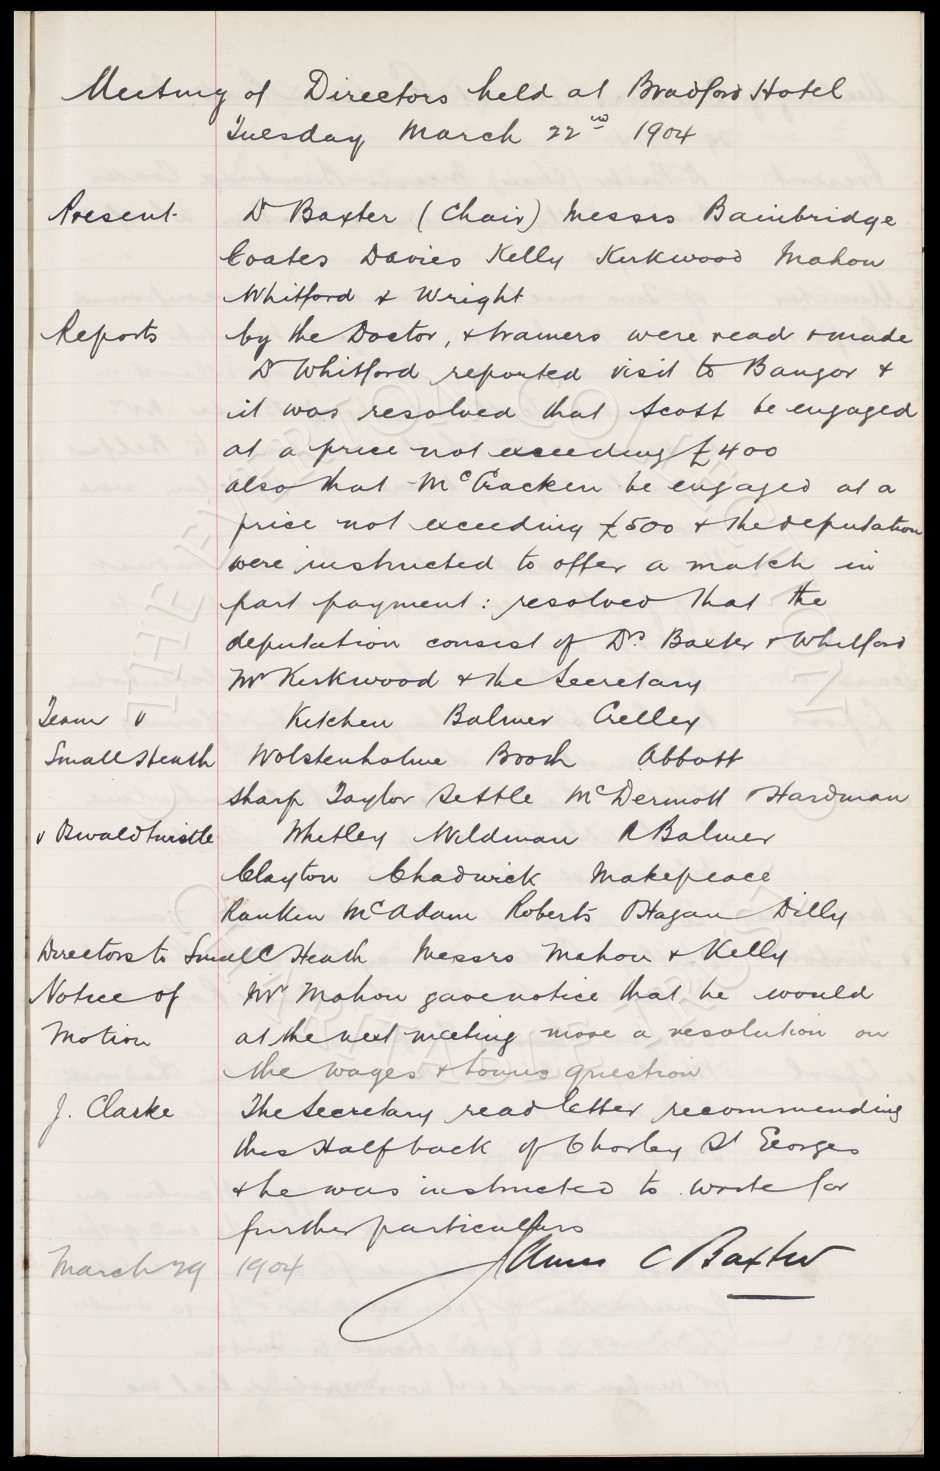 Meeting of Directors held at Bradford Hotel
Tuesday March 22nd 1904
Present Dr Baxter (Chair) Messrs Bainbridge
Coates Davies Kelly Kirkwood Mahon
Whitford & Wright
Reports by the Doctor, & trainers were read & made
Dr Whitford reported visit to Bangor &
it was resolved that Scott be engaged
at a price not exceeding £400
also that McCracken be engaged at a
price not exceeding £500 & the deputation
were instructed to offer a match in
part payment: resolved that the
deputation consist of Drs Baxter & Whitford
Mr Kirkwood & the Secretary
Team v Kitchen Balmer Crelley
Small Heath Wolstenholme Booth Abbott
Sharp Taylor Settle McDermott Hardman
v Oswaldtwistle Whitley Wildman R Balmer
Clayton Chadwick Makepeace
Rankin McAdam Roberts OHagan Dilly
Directors to Small Heath Messrs Mahon & Kelly
Notice of Mr Mahon gave notice that he would
Motion at the next meeting move a resolution on
the wages & bonus question
J. Clarke The Secretary read letter recommending
this Half back of Chorley St Georges
& he was instructed to write for
further particulars
March 29 1904 James C Baxter